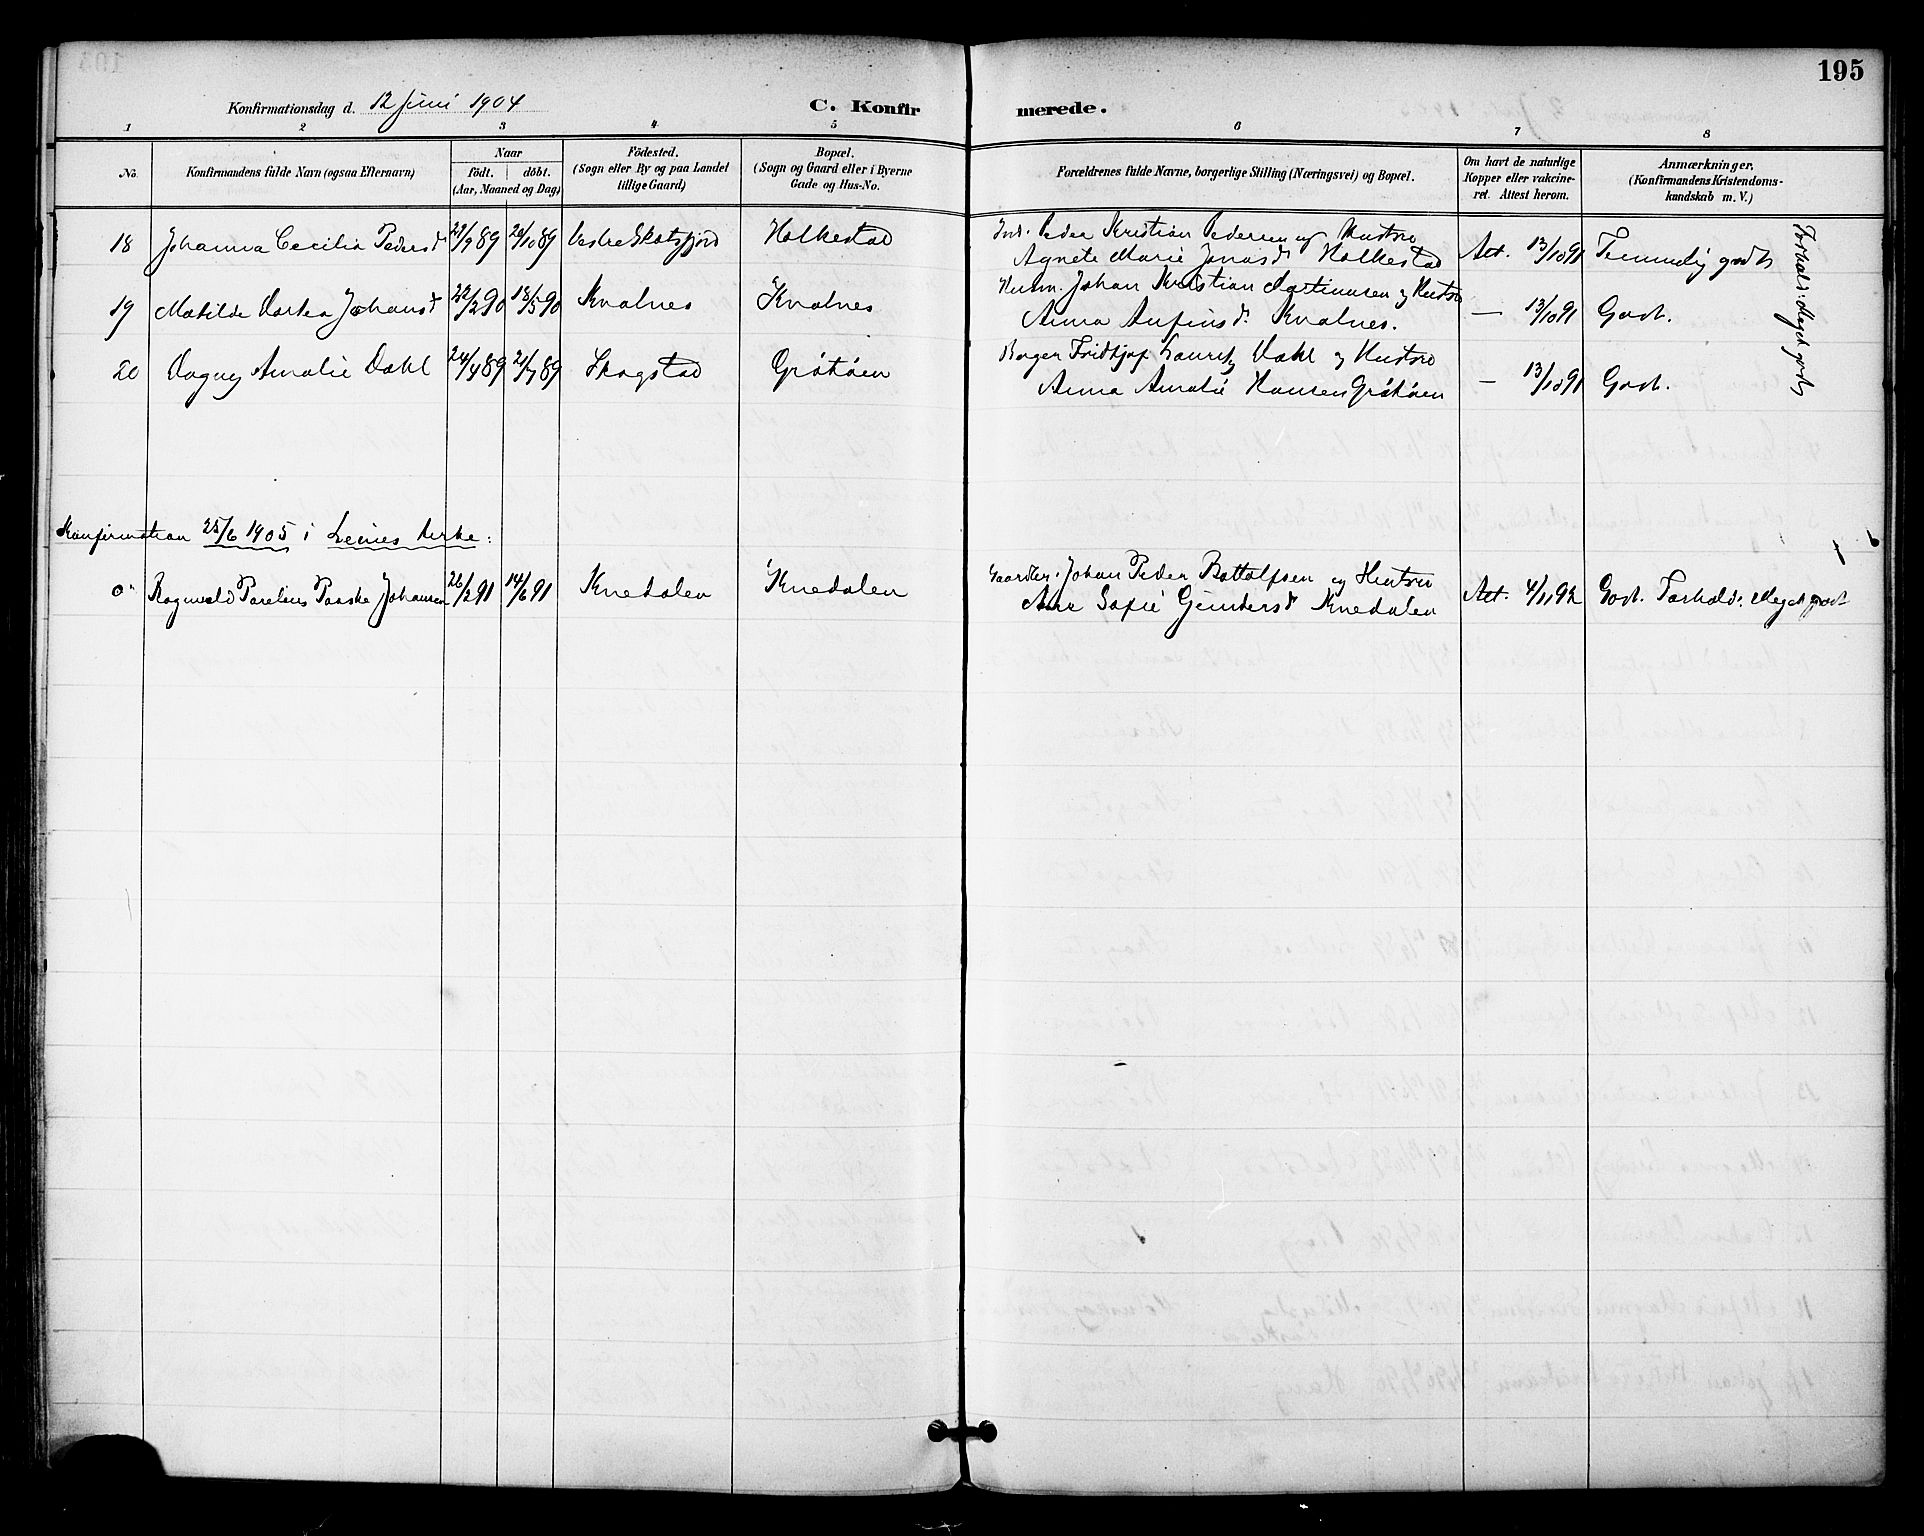 195
Konfirmationsdag d. 12 Juni 1904
C. Konfirmerede.
1 2 3 4 5 6 7 8
No. Konfirmandens fulde Navn (ogsaa Efternavn) Naar Födt. döbt. (Aar, Maaned og Dag) Födested. (Sogn eller By og paa Landet tillige Gaard) Bopæl. (Sogn og Gaard eller i Byerne Gade og Hus-No. Forældrenes fulde Navne, borgerlige Stilling (Næringsvei) og Bopæl. Om havt de naturlige Kopper eller vakcineret. Attest herom. Anmærkninger. (Konfirmandens Kristendomskundskab m. V.)
18 Johanna Cecilia Pedersd 22/9 89 20/10 89 Vestre Skotsfjord Holkestad Inds. Peder Kristian Pedersen og Hustro
Agnete Marie Jonasd Holkestad Att. 13/10 91 Temmelig godt
19 Matilde Dortea Johansd 22/2 90 18/5 90 Kvalnes Kvalnes Husm. Johan Kristian Martinusen og Hustro
Anna Anfinsd. Kvalnes. — 13/10 91 Godt.
20 Dagny Amalie Dahl 24/4 89 21/7 89 Skagstad Grötöen Borger Fridthjof Lauritz Dahl og Hustro
Anna Amalie Hansen Grötöen — 13/10 91 Godt.
Forhold: Meget godt
Konfirmation 25/6 1905 i Leines Kirke:
Ragnvald Parelius Paaske Johansen 26/2 91 14/6 91 Knedalen Knedalen Gaardbr. Johan Peder Bottolfsen og Hustro
Ane Sofie Gundersd Knedalen Att. 4/11 92 Godt. Forhold: Meget godt